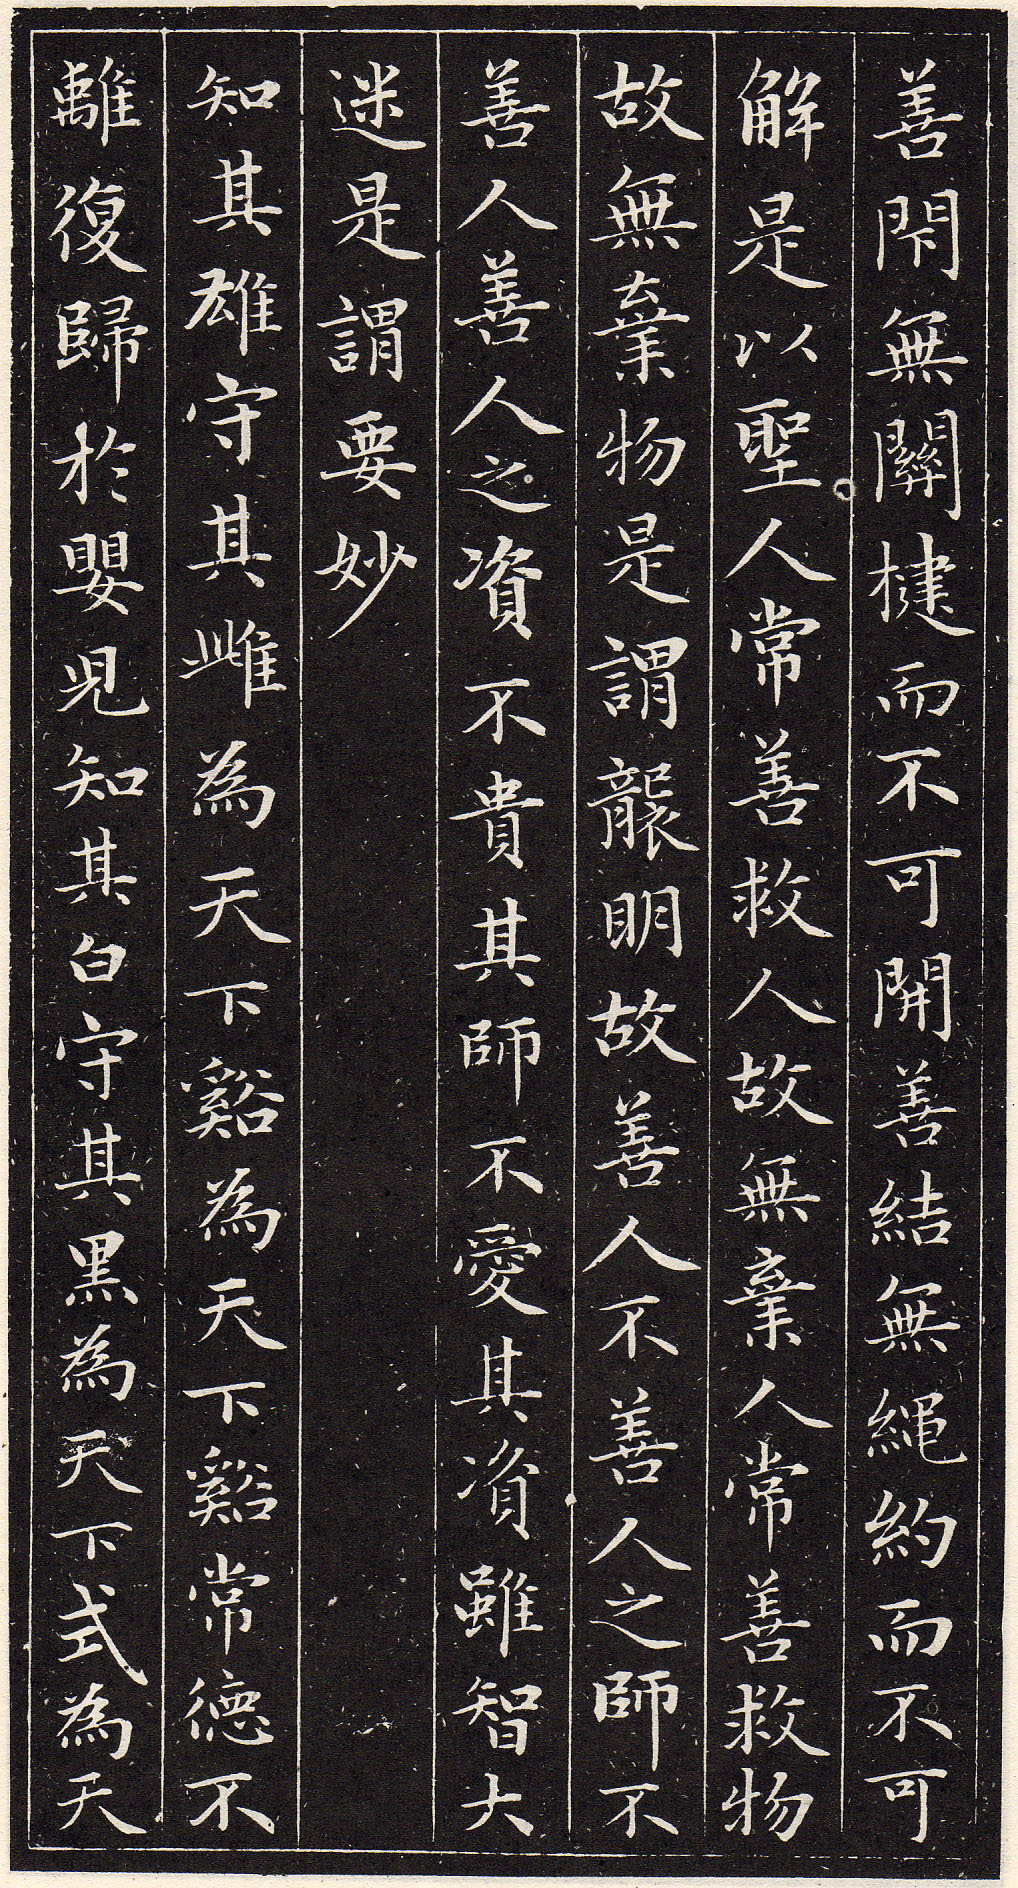 善閇無關揵而不可開善結無繩約而不可
解是以聖人常善救人故無棄人常善救物
故無棄物是謂襲明故善人不善人之師不
善人善人之資不貴其師不愛其資雖智大
迷是謂要妙
知其雄守其雌為天下谿為天下谿常德不
離復歸於嬰兒知其白守其黑為天下式為天